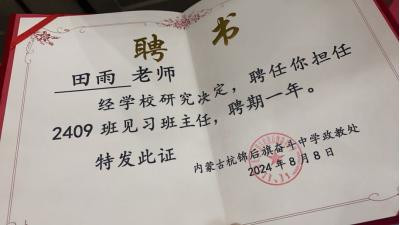 聘书
田雨 老师
经学校研究决定，聘任你担任
2409 班见习班主任，聘期一年。
特发此证
内蒙古杭锦后旗奋斗中学政教处
2024年8月8日